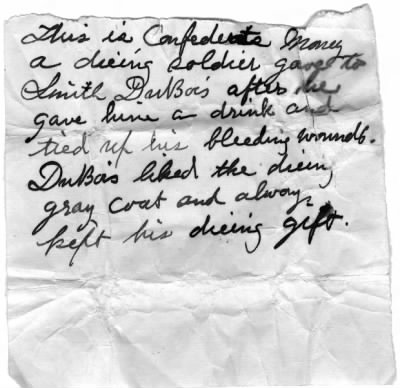 This is Confederate Money
a dieing soldier gave to
Smith DuBois after he
gave him a drink and
tied up his bleeding wounds.
DuBois liked the dieing
gray coat and always
kept his dieing gift.